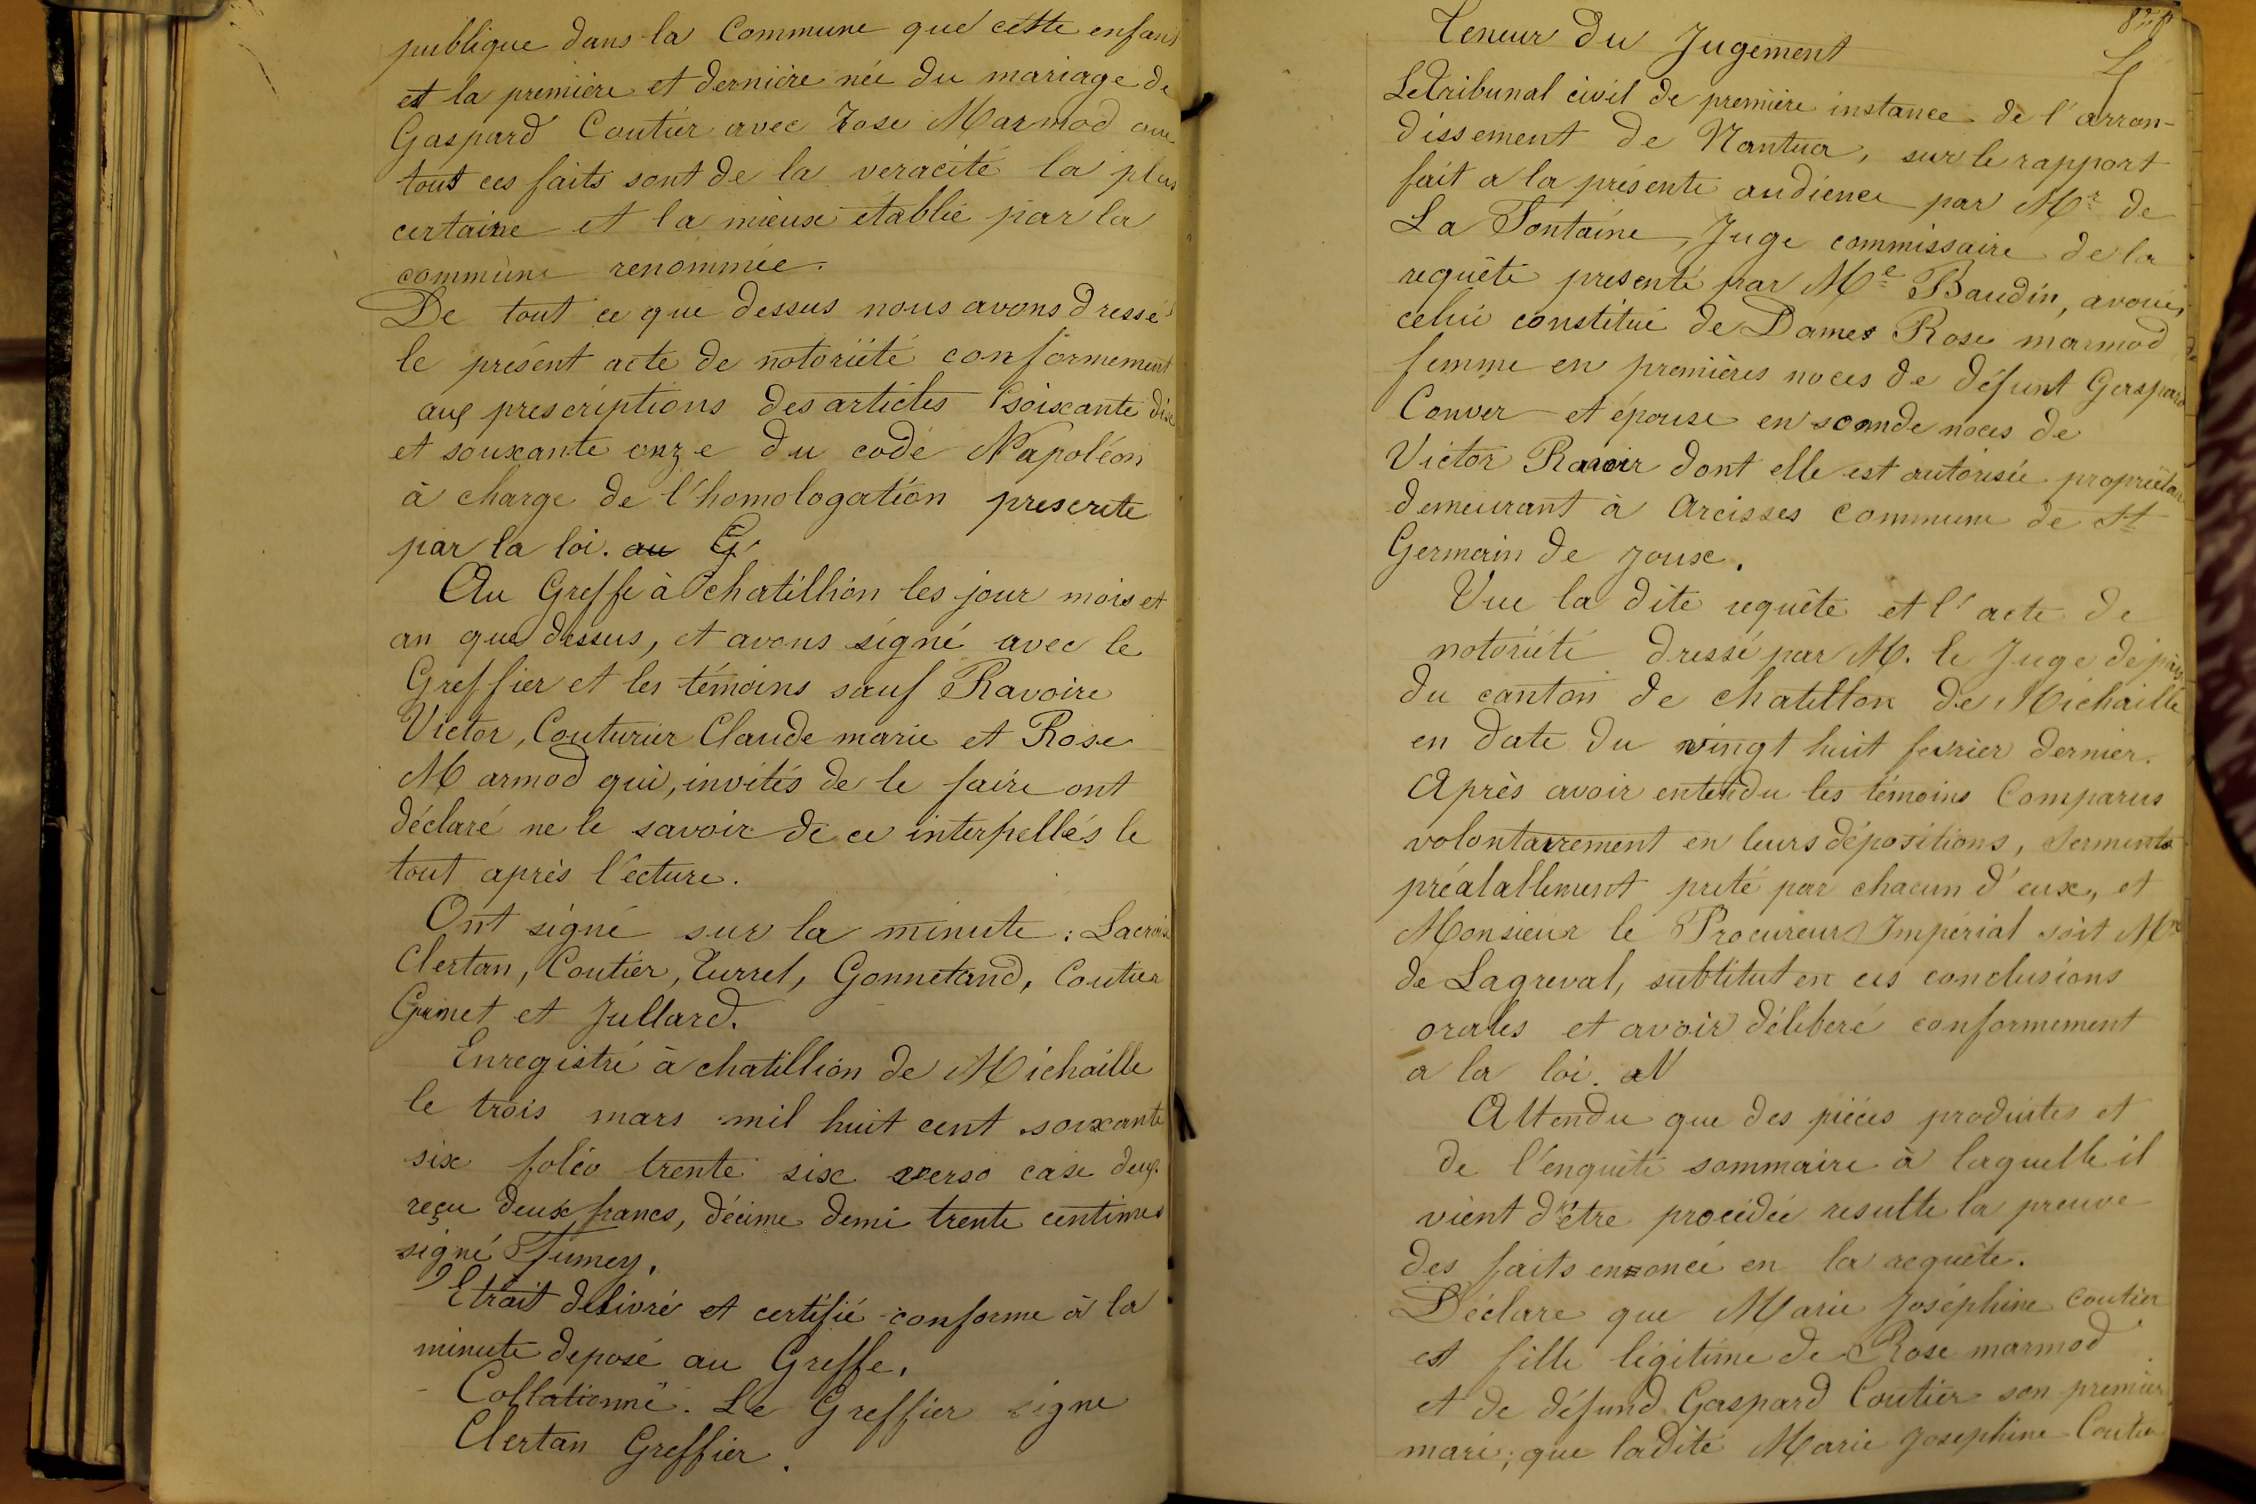 publique dans la Commune que cette enfant
est la première et dernière née du mariage de
Gaspard Coutier avec Rose Marmod que
tout ces faits sont de la veracité la plus
certaine et la mieux établie par la
commune renommée.
De tout ce que dessus nous avons dressé
le présent acte de notoriété conformement
aux prescriptions des articles soixante dix
et souxante onze du code Napoléon
à charge de l'homologation prescrite
par la loi. au G
Au Greffe à chatillion les jour mois et
an que dessus, et avons signé avec le
Greffier et les témoins sauf Ravoire
Victor, Couturier Claude marie et Rose
Marmod qui, invités de le faire ont
déclaré ne le savoir de ce interpellés le
tout après lecture.
Ont signé sur la minute : Lacroix
Clertan, Coutier, Turrel, Gonnetand, Coutier
Guinet et Jullard.
Enregistré à chatillion de Michaille
le trois mars mil huit cent soixante
six folio trente six verso case deux.
reçu deux francs, décime demi trente centimes
signé Fumey.
Etrait delivré et certifié conforme à la
minute deposé au Greffe.
Collationné. Le Greffier signe
Clertan Greffier.
Teneur du Jugement
Le tribunal civil de première instance de l'arron-
dissement de Nantua, sur le rapport
fait a la présente audience par Mr de
La Fontaine, Juge commissaire de la
requête presenté par Me Baudin, avoué,
celui constitué de Dames Rose marmod
femme en premières noces de défunt Gaspard
Conver et épouse en sconde noces de
Victor Ravoir dont elle est autorisée propriétaire
demeurant à Arcisses commune de St
Germain de Joux.
Vue la dite requête et l'acte de
notoriété dressé par M. le Juge de paix
du canton de chatillon de Michaille
en date du vingt huit fevrier dernier.
Après avoir entendu les témoins Comparus
volontairement en leurs dépositions, serments
préalallement preté par chacun d'eux, et
Monsieur le Procureur Impérial soit Mr
de Lagreval, subtitut en ces conclusions
orales et avoir déliberé conformement
a la loi.
Attendu que des pièces produites et
de l'enquête sommaire à laquelle il
vient d'être procédée resulte la preuve
des faits enoncé en la requête.
Déclare que Marie Joséphine Coutier
est fille légitime de Rose marmod
et de défund Gaspard Coutier son premier
mari; que ladite Marie Josephine Coutier